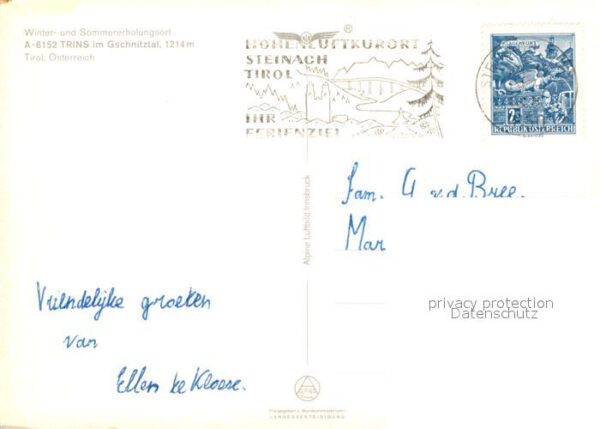 Winter- und Sommererholungsort
A-6152 TRINS im Gschnitztal, 1214 m
Tirol, Österreich
HÖHENLUFTKURORT
STEINACH
TIROL
IHR
FERIENZIEL
KLAGENFURT
2S
REPUBLIK ÖSTERREICH
Alpine Luftbild Innsbruck
Fam. A v.d. Bree.
Mar
privacy protection
Datenschutz
Vriendelijke groeten
van
Ellen te Kloese.
Freigegeben v. Bundesministerium f.
LANDESVERTEIDIGUNG